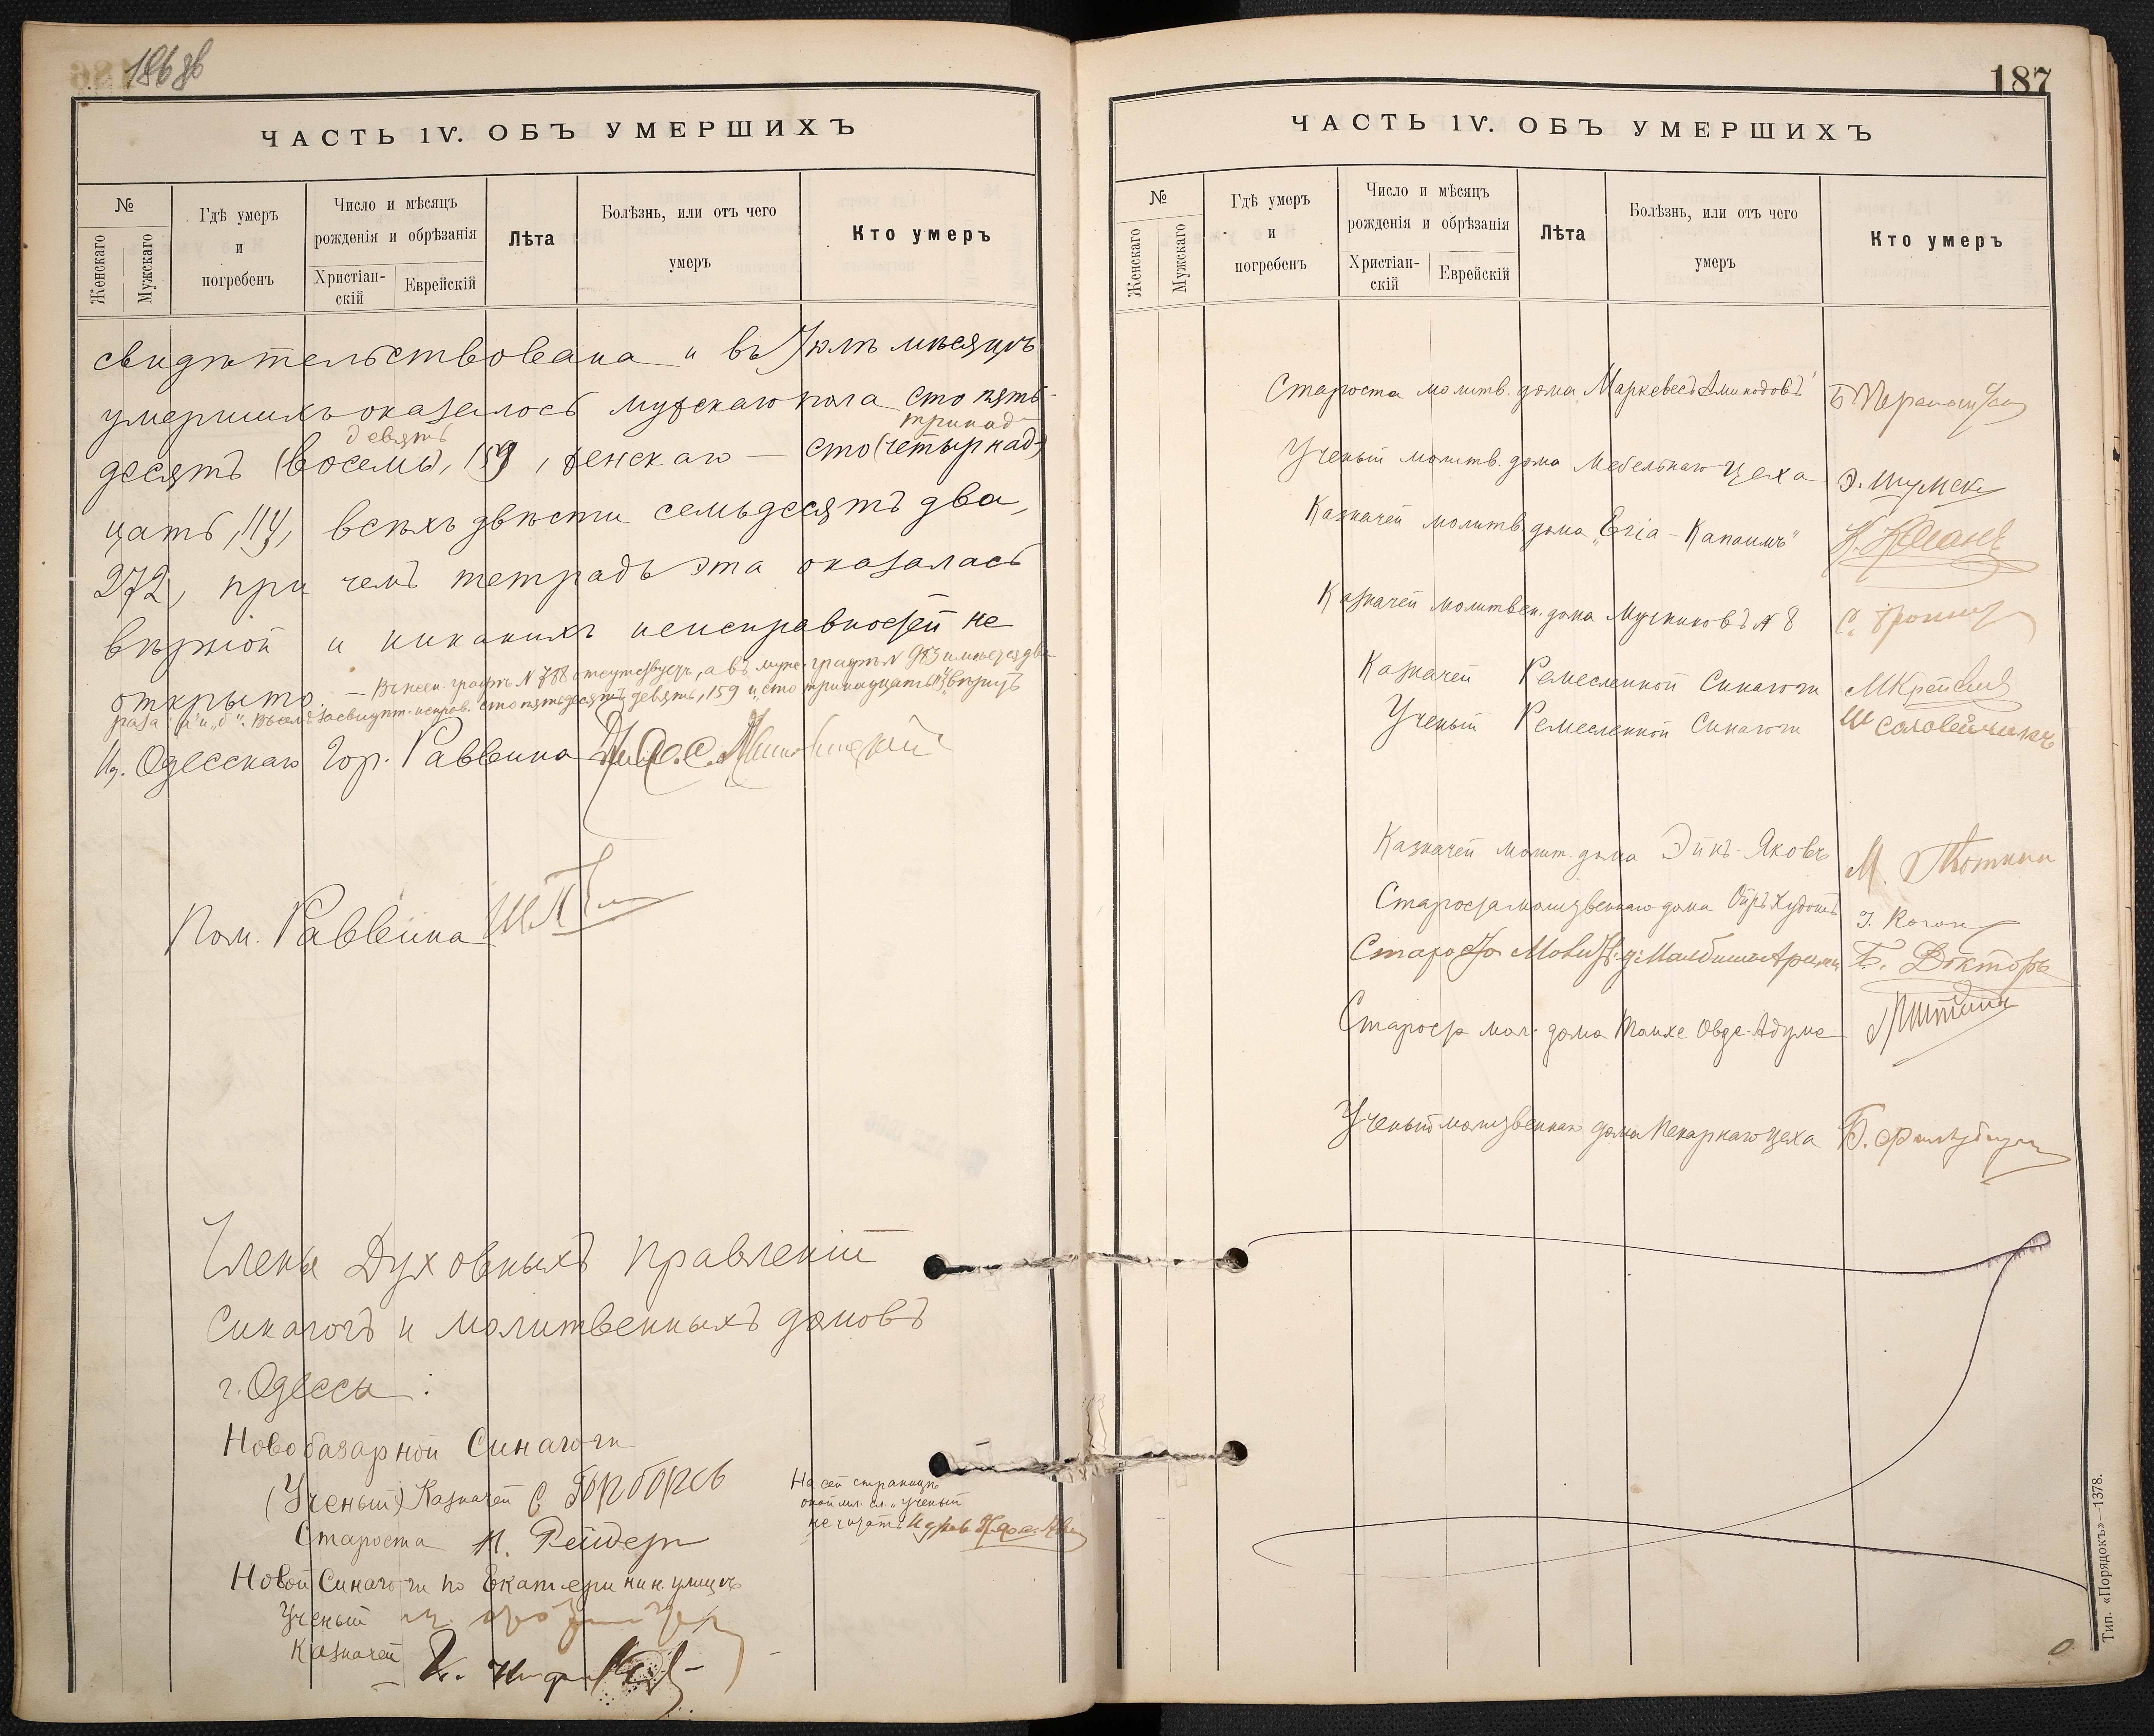 186 об
ЧАСТЬ IV. ОБЪ УМЕРШИХЪ
№
Женскаго
Мужскаго
Гдѣ умеръ
и
погребенъ
Число и мѣсяцъ
рожденія и обрѣзанія
Христіан-
скій
Еврейскій
Лѣта
Болѣзнь, или отъ чего
умеръ
Кто умеръ
свидѣтельствована и въ Юлѣ мѣсяцѣ
умершихъ оказалось мужскаго пола сто пять-
девять
тринад-
десятъ (восемь), 159, женскаго — сто (четырнад-)
цать, 113, всѣхъ двѣсти семьдесятъ два,
272, при чемъ тетрадь эта оказалась
вѣрной и никакихъ неисправностей не
открыто. — Въ женск. графѣ № 788 отсутствуетъ, а въ муж. графѣ № 983 имѣется два
раза: "а" и "б". Въ семъ засвидѣт. исправ. сто пятьдесятъ девять, 159 и сто тринадцать 113 вѣрить
И. д. Одесскаго Гор. Раввина
Пом. Раввина
Члены Духовныхъ Правленій
Синагогъ и молитвенныхъ домовъ
г. Одессы:
Новобазарной Синагоги
(Ученый) Казначей С.
Староста
Новой Синагоги по Екатеринин. улицѣ
Ученый
Казначей
На сей страницѣ
сл. "Ученый
не читать
187
ЧАСТЬ IV. ОБЪ УМЕРШИХЪ
№
Женскаго
Мужскаго
Гдѣ умеръ
и
погребенъ
Число и мѣсяцъ
рожденія и обрѣзанія
Христіан-
скій
Еврейскій
Лѣта
Болѣзнь, или отъ чего
умеръ
Кто умеръ
Староста молитв. дома Маркевесъ Аминодовъ
Ученый молитв. дома Мебельнаго цеха Э. Шумск
Казначей молитв дома "Егіа-Капаимъ"
Казначей молитвен. дома Мучниковъ № 8
Казначей Ремесленной Синагоги
Ученый Ремесленной Синагоги Ш Соловейчикъ
Казначей молит. дома Эйнъ-Яковъ М.
Староста молитвеннаго дома І. Коган
Староста Б. Докторъ
Староста мол. дома
Ученый молитвеннаго дома Пекарнаго цеха Б.
Тип. «Порядокъ»—1378.